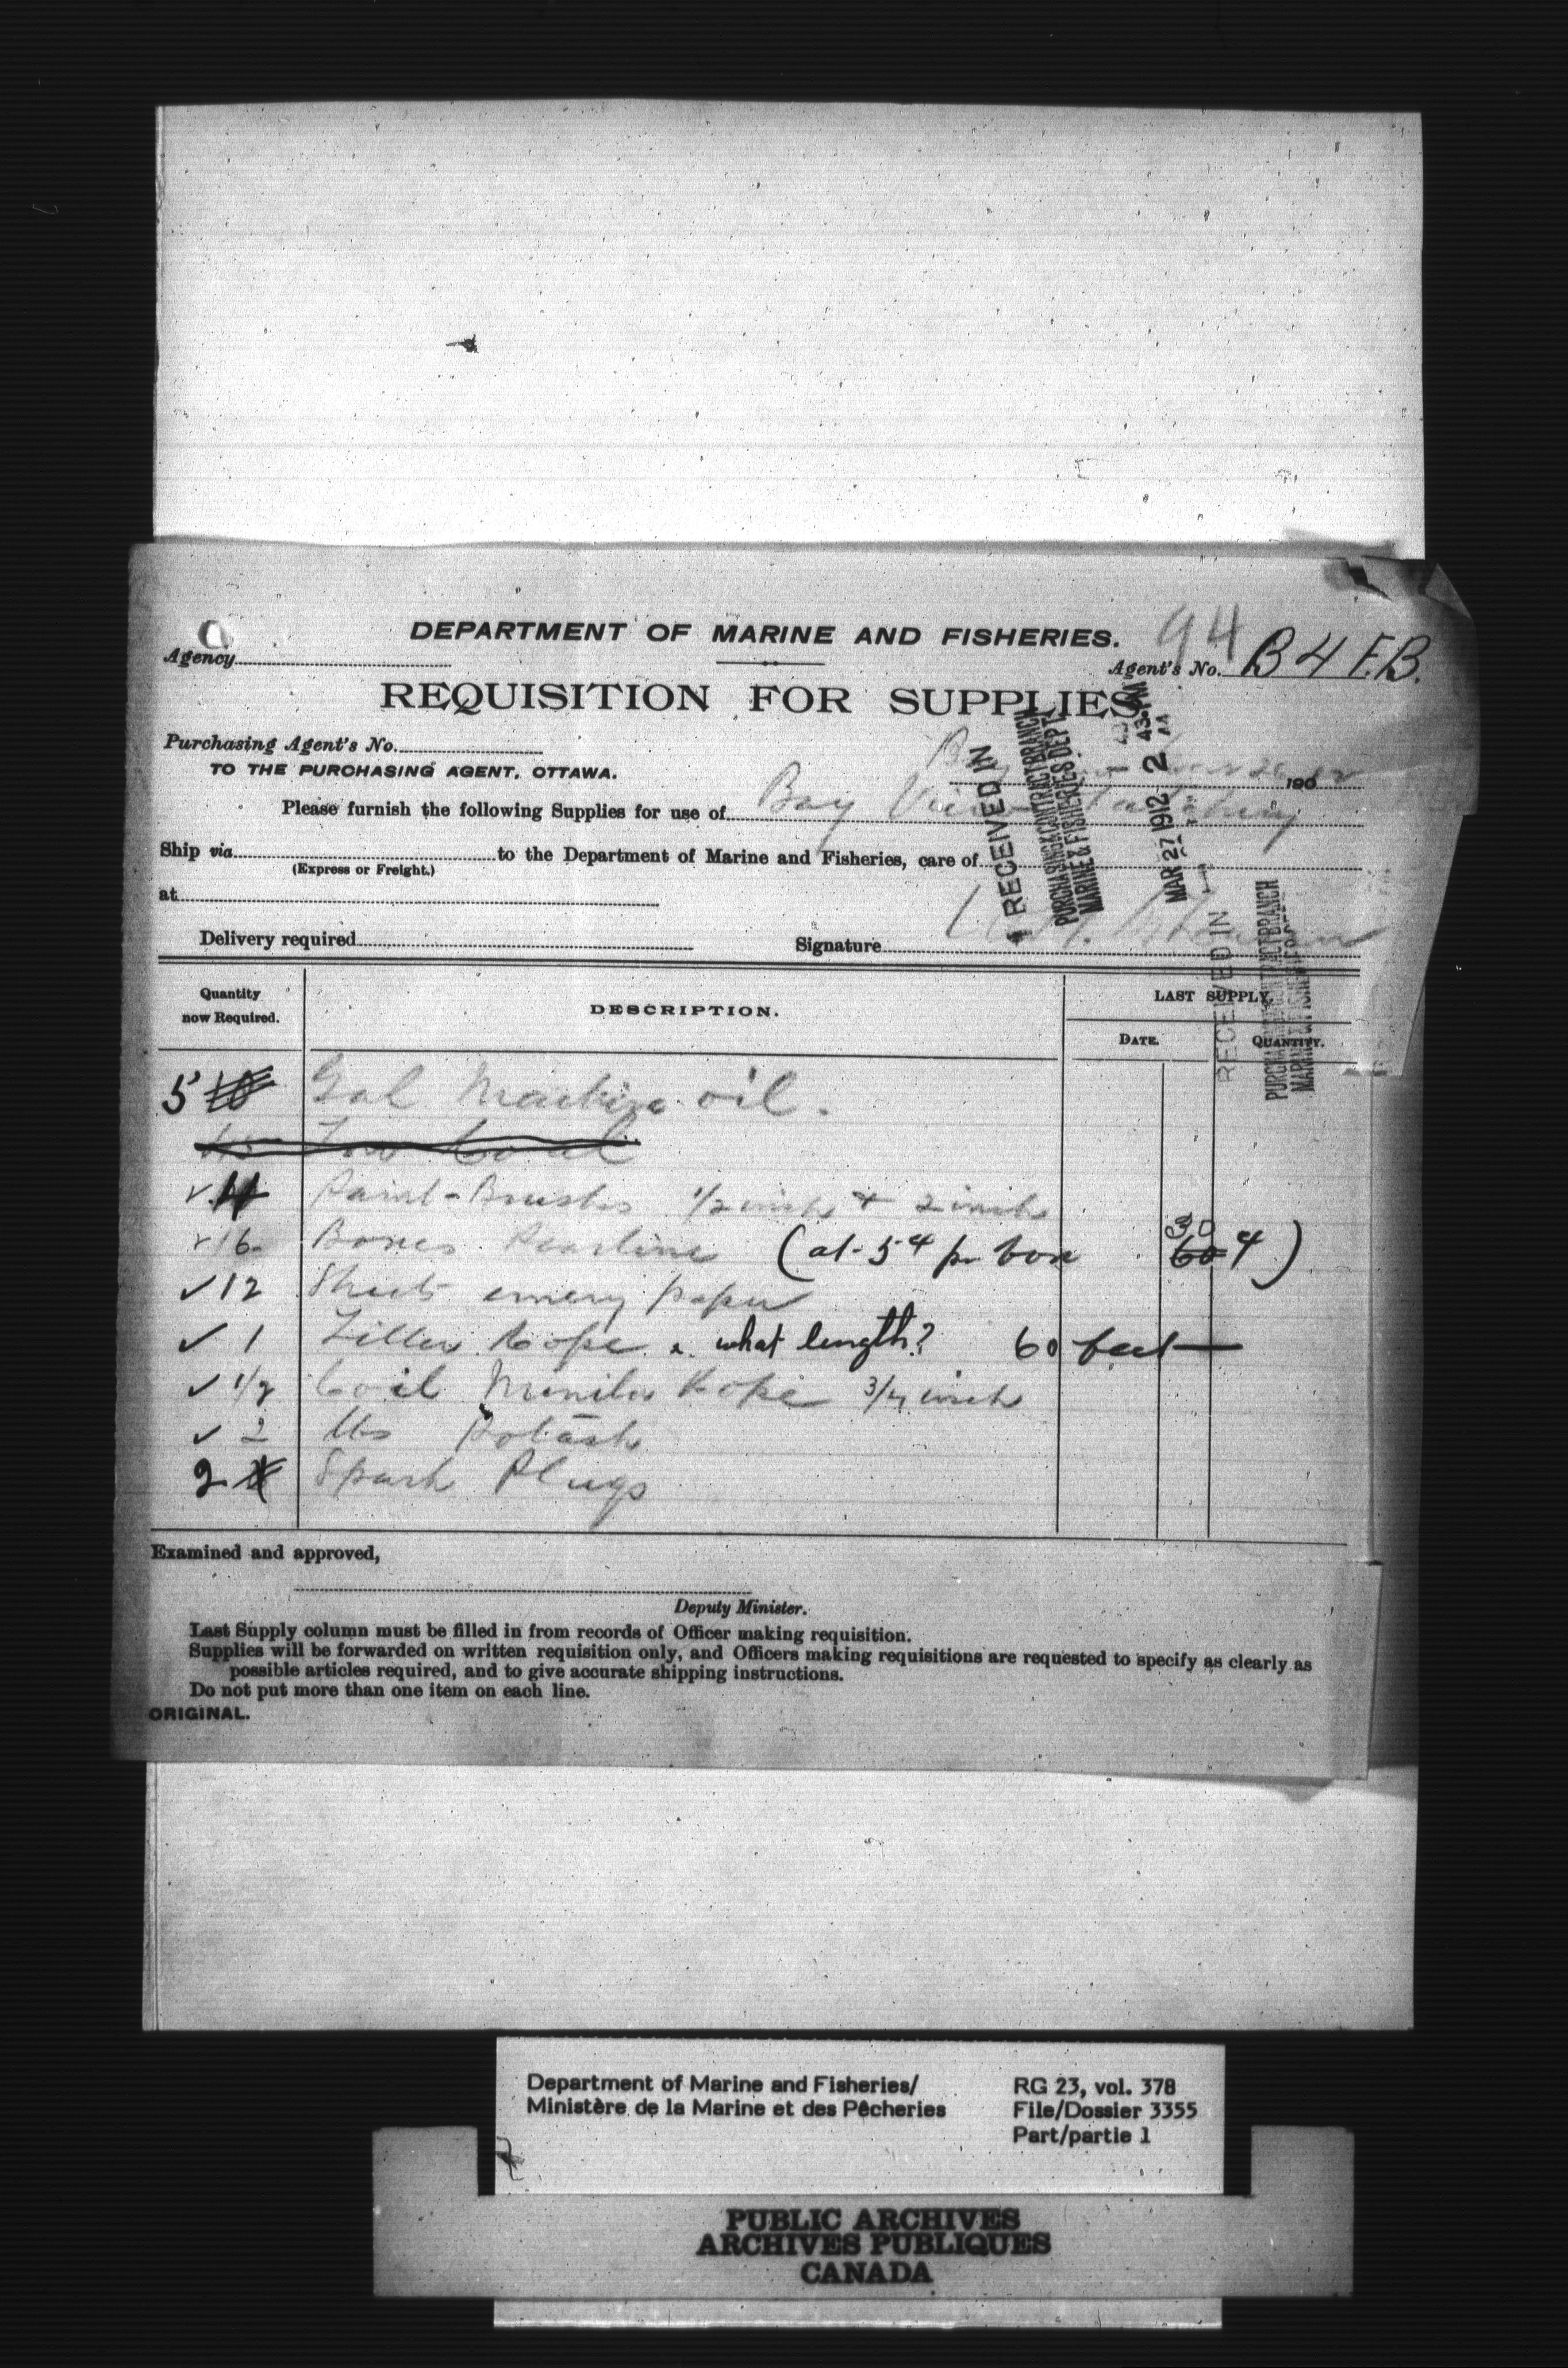 94
DEPARTMENT OF MARINE AND FISHERIES.
Agency
Agent's No. B 4 F.B.
REQUISITION FOR SUPPLIES
Purchasing Agent's No.
TO THE PURCHASING AGENT, OTTAWA.
190
Please furnish the following Supplies for use of Bay View Hatchery
Ship via to the Department of Marine and Fisheries, care of
(Express or Freight.)
at
Delivery required Signature
RECEIVED IN
PURCHASING & CONTRACT BRANCH
MARINE & FISHERIES DEPT.
MAR 27 1912
RECEIVED IN
Quantity
now Required.
DESCRIPTION.
LAST SUPPLY.
DATE.
QUANTITY.
5 10 Gal Machine oil.
Ton Coal
✓ 4 Paint-Brushes 1/2 inch + 2 inch
16 Boxes Pearline (at 5¢ pr box 30 60 ¢)
✓ 12 Sheets emery paper
✓ 1 Tiller Rope what length? 60 feet
✓ 1/2 Coil Manila Rope 3/4 inch
✓ 2 lbs Potash
2 Spark Plugs
Examined and approved,
Deputy Minister.
Last Supply column must be filled in from records of Officer making requisition.
Supplies will be forwarded on written requisition only, and Officers making requisitions are requested to specify as clearly as
possible articles required, and to give accurate shipping instructions.
Do not put more than one item on each line.
ORIGINAL.
Department of Marine and Fisheries/
Ministère de la Marine et des Pêcheries
RG 23, vol. 378
File/Dossier 3355
Part/partie 1
PUBLIC ARCHIVES
ARCHIVES PUBLIQUES
CANADA